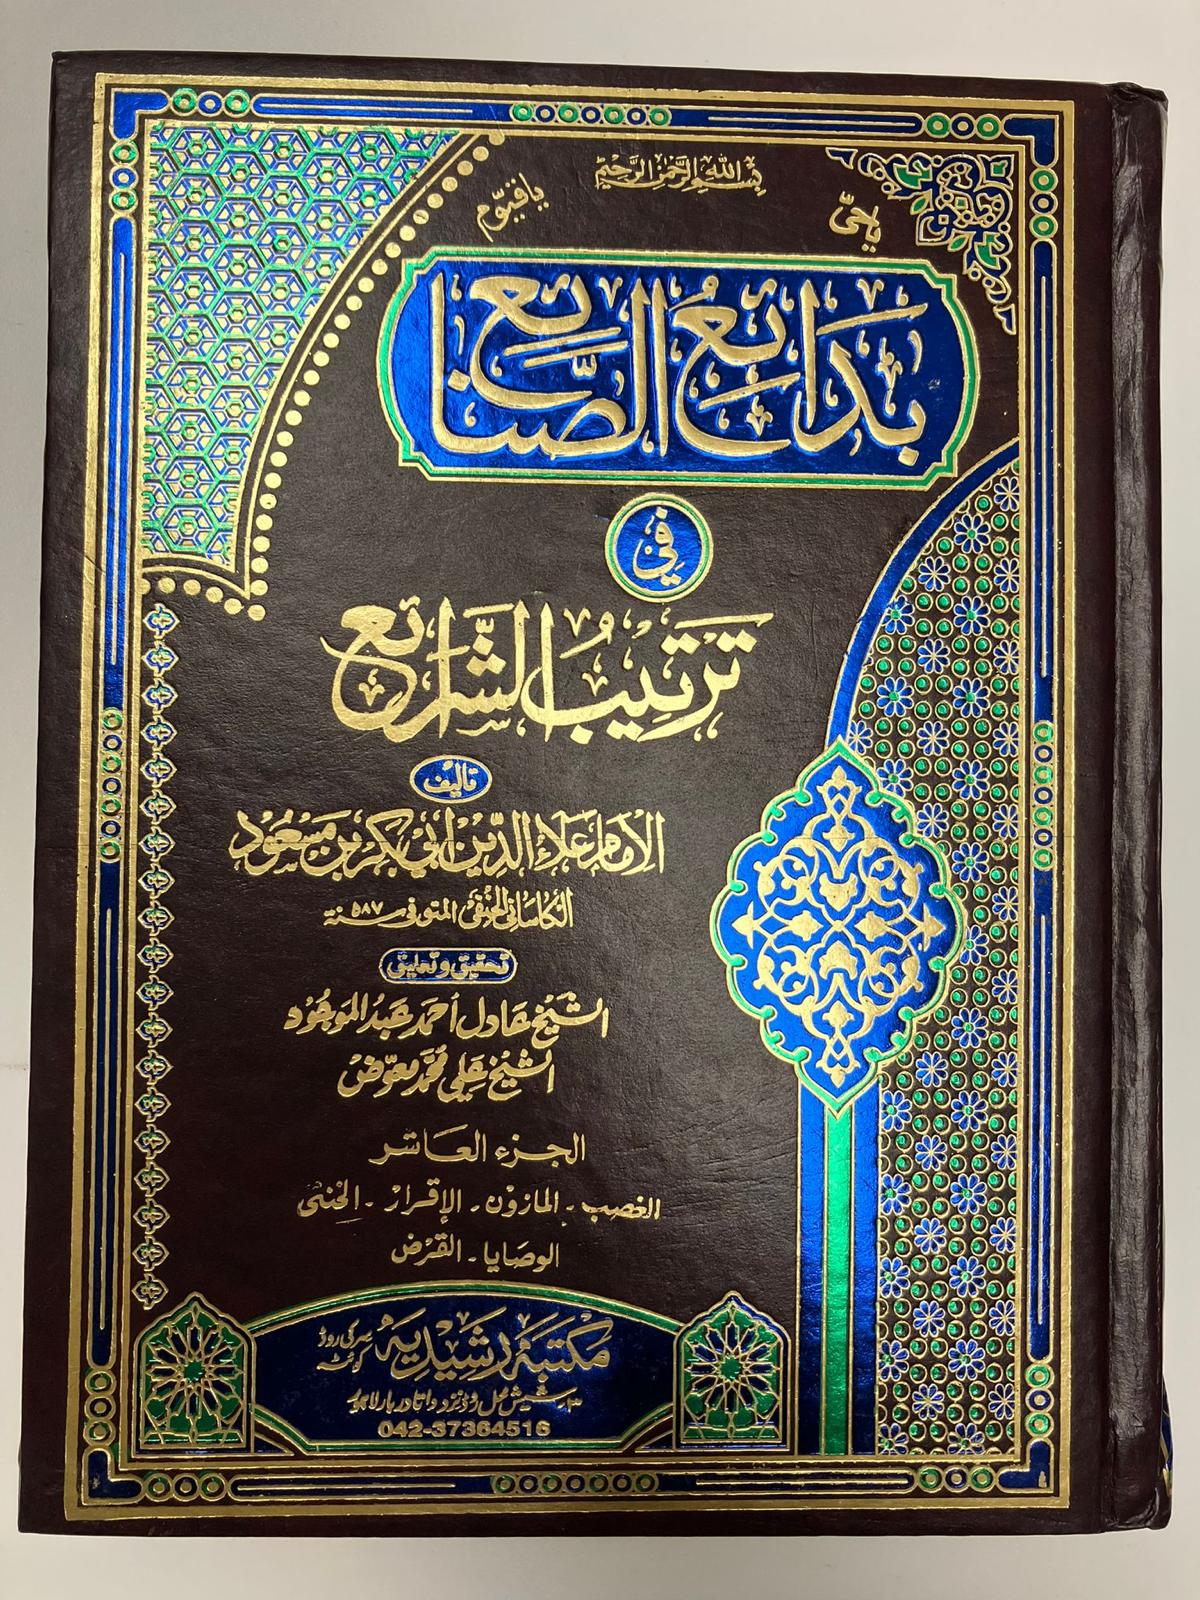 بِسْمِ اللهِ الرَّحْمٰنِ الرَّحِيْمِ
يا حيّ
يا قيّوم
بَدَائِعُ الصَّنَائِعِ
فِي
تَرتِيبُ الشَّرَائِعِ
تأليف
الإمَام عَلَاءُ الدِّيْن أبِي بَكر بن مَسْعُود
الكاساني الحنفي المتوفى سنة ٥٨٧
تحقيق وتعليق
الشيخ عَادل أحمَد عَبدُ المَوجُود
الشيخ عَلِي محمَّد معوّض
الجزء العاشر
الغصب - المازون - الإقرار - الخنثى
الوصايا - القرض
مكتبه رشيديه سرکی روڈ کوئٹہ
۳- شیش محل روڈ نزد داتا دربار لاہور
042-37364516